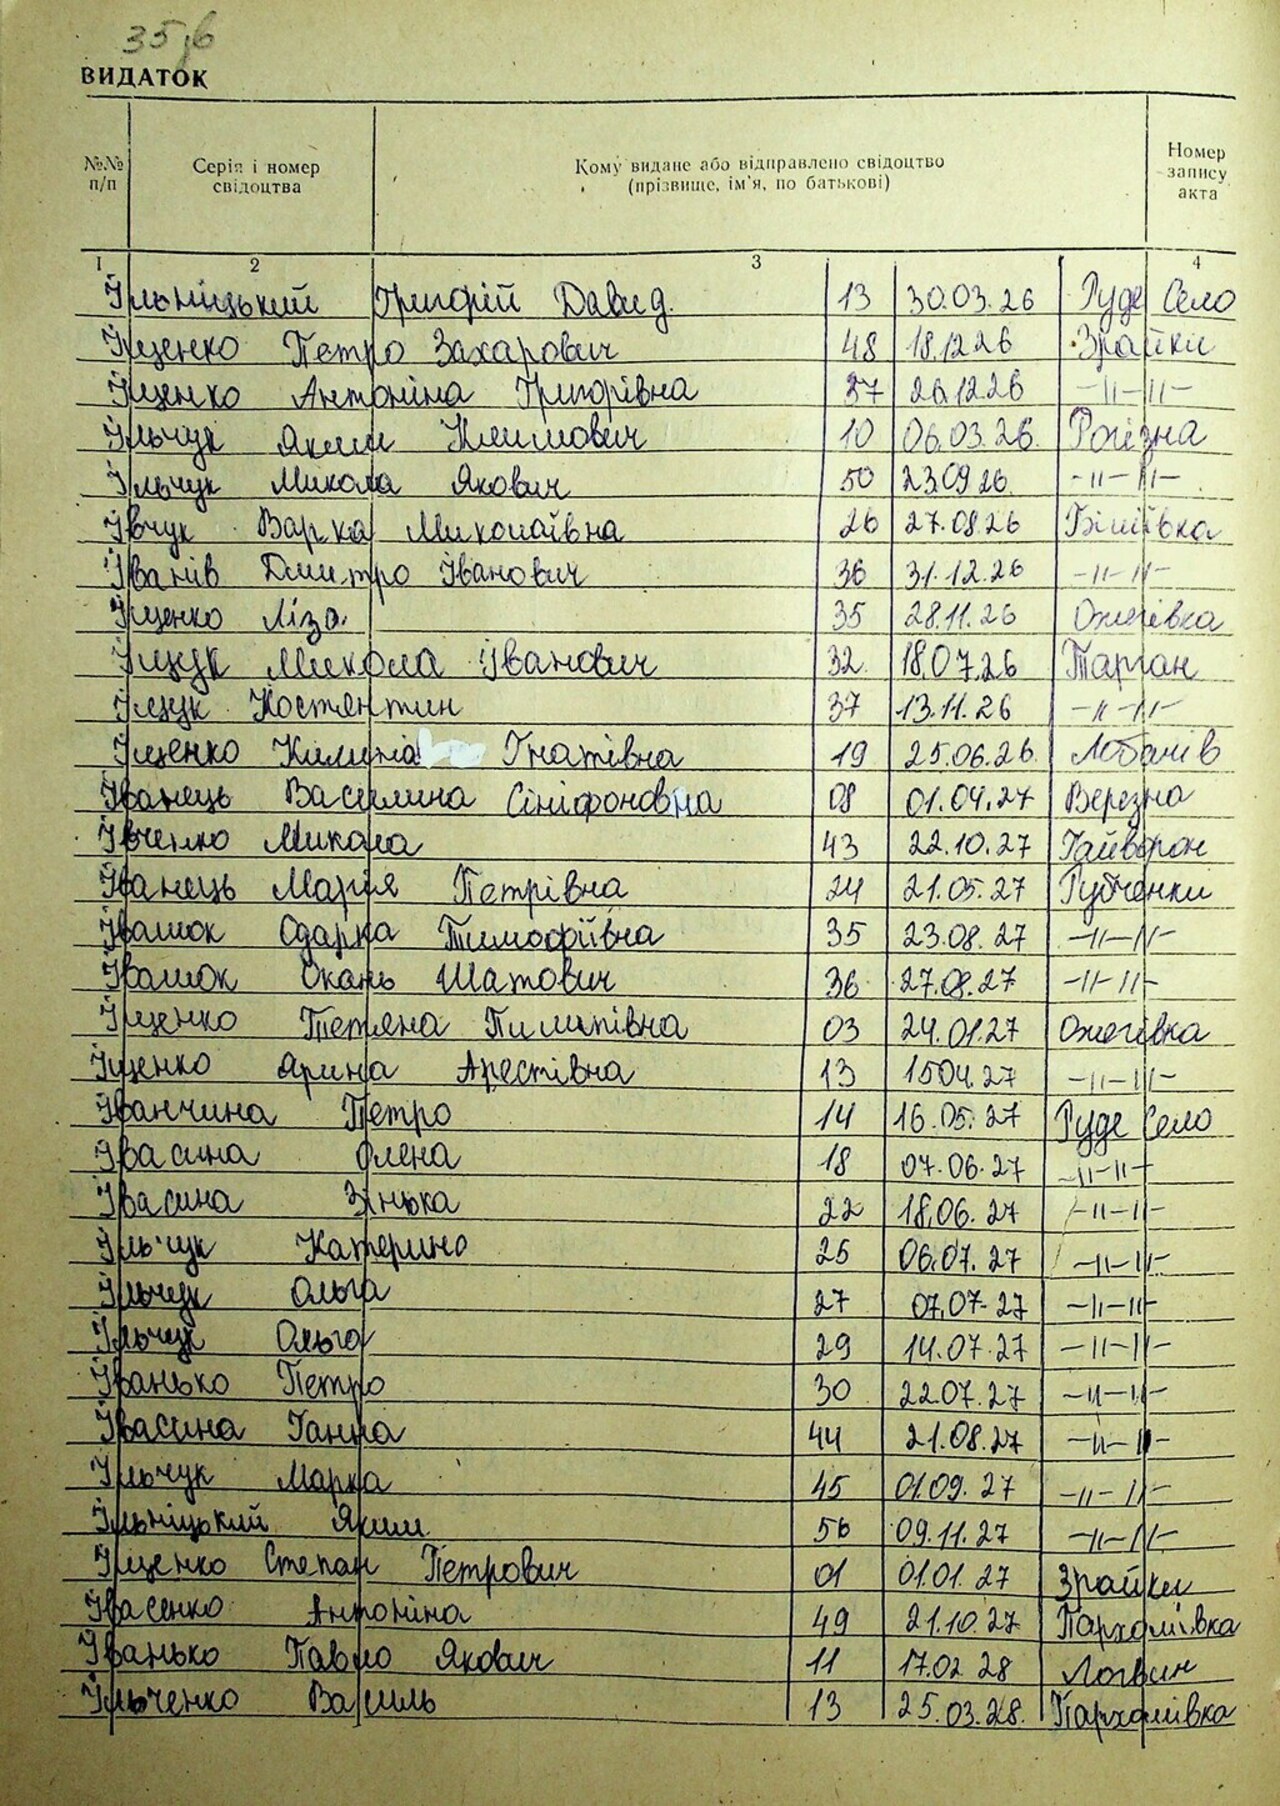 35,6
ВИДАТОК
№№ п/п Серія і номер свідоцтва Кому видане або відправлено свідоцтво (прізвище, ім'я, по батькові) Номер запису акта
1 2 3 4
Ільніцький Григорій Давид. 13 30.03.26 Руде Село
Іщенко Петро Захарович 48 18.12.26 Зрайки
Іщенко Антоніна Григорівна 37 26.12.26 -"-"-
Ільчук Яким Климович 10 06.03.26. Рогізна
Ільчук Микола Якович 50 23.09.26. -"-"-
Івчук Варка Миколаївна 26 27.08.26 Біліївка
Іванів Дмитро Іванович 36 31.12.26 -"-"-
Іщенко Ліза. 35 28.11.26 Ожегівка
Іщук Микола Іванович 32 18.07.26 Тарган
Іщук Костянтин 37 13.11.26 -"-"-
Іщенко Килина Гнатівна 19 25.06.26. Лобачів
Іванець Василина Сініфоновна 08 01.04.27 Березна
Івченко Микола 43 22.10.27 Гайворон
Іванець Марія Петрівна 24 21.05.27 Рубченки
Івашок Одарка Тимофіївна 35 23.08.27 -"-"-
Івашок Шатович 36 27.08.27 -"-"-
Іщенко Тетяна Пилипівна 03 24.01.27 Ожегівка
Іщенко Ярина Арестівна 13 15.04.27 -"-"-
Іванчина Петро 14 16.05.27 Руде Село
Івасина Олена 18 07.06.27 -"-"-
Івасина Зінька 22 18.06.27 -"-"-
Ільчук Катерина 25 06.07.27 -"-"-
Ільчук Ольга 27 07.07.27 -"-"-
Ільчук Ольга 29 14.07.27 -"-"-
Іванько Петро 30 22.07.27 -"-"-
Івасина Ганна 44 21.08.27 -"-"-
Ільчук Марка 45 01.09.27 -"-"-
Ільніцький Яким 56 09.11.27 -"-"-
Іщенко Степан Петрович 01 01.01.27 Зрайки
Івасенко Антоніна 49 21.10.27 Пархомівка
Іванько Павло Якович 11 17.02.28 Логвин
Ільченко Василь 13 25.03.28. Пархомівка